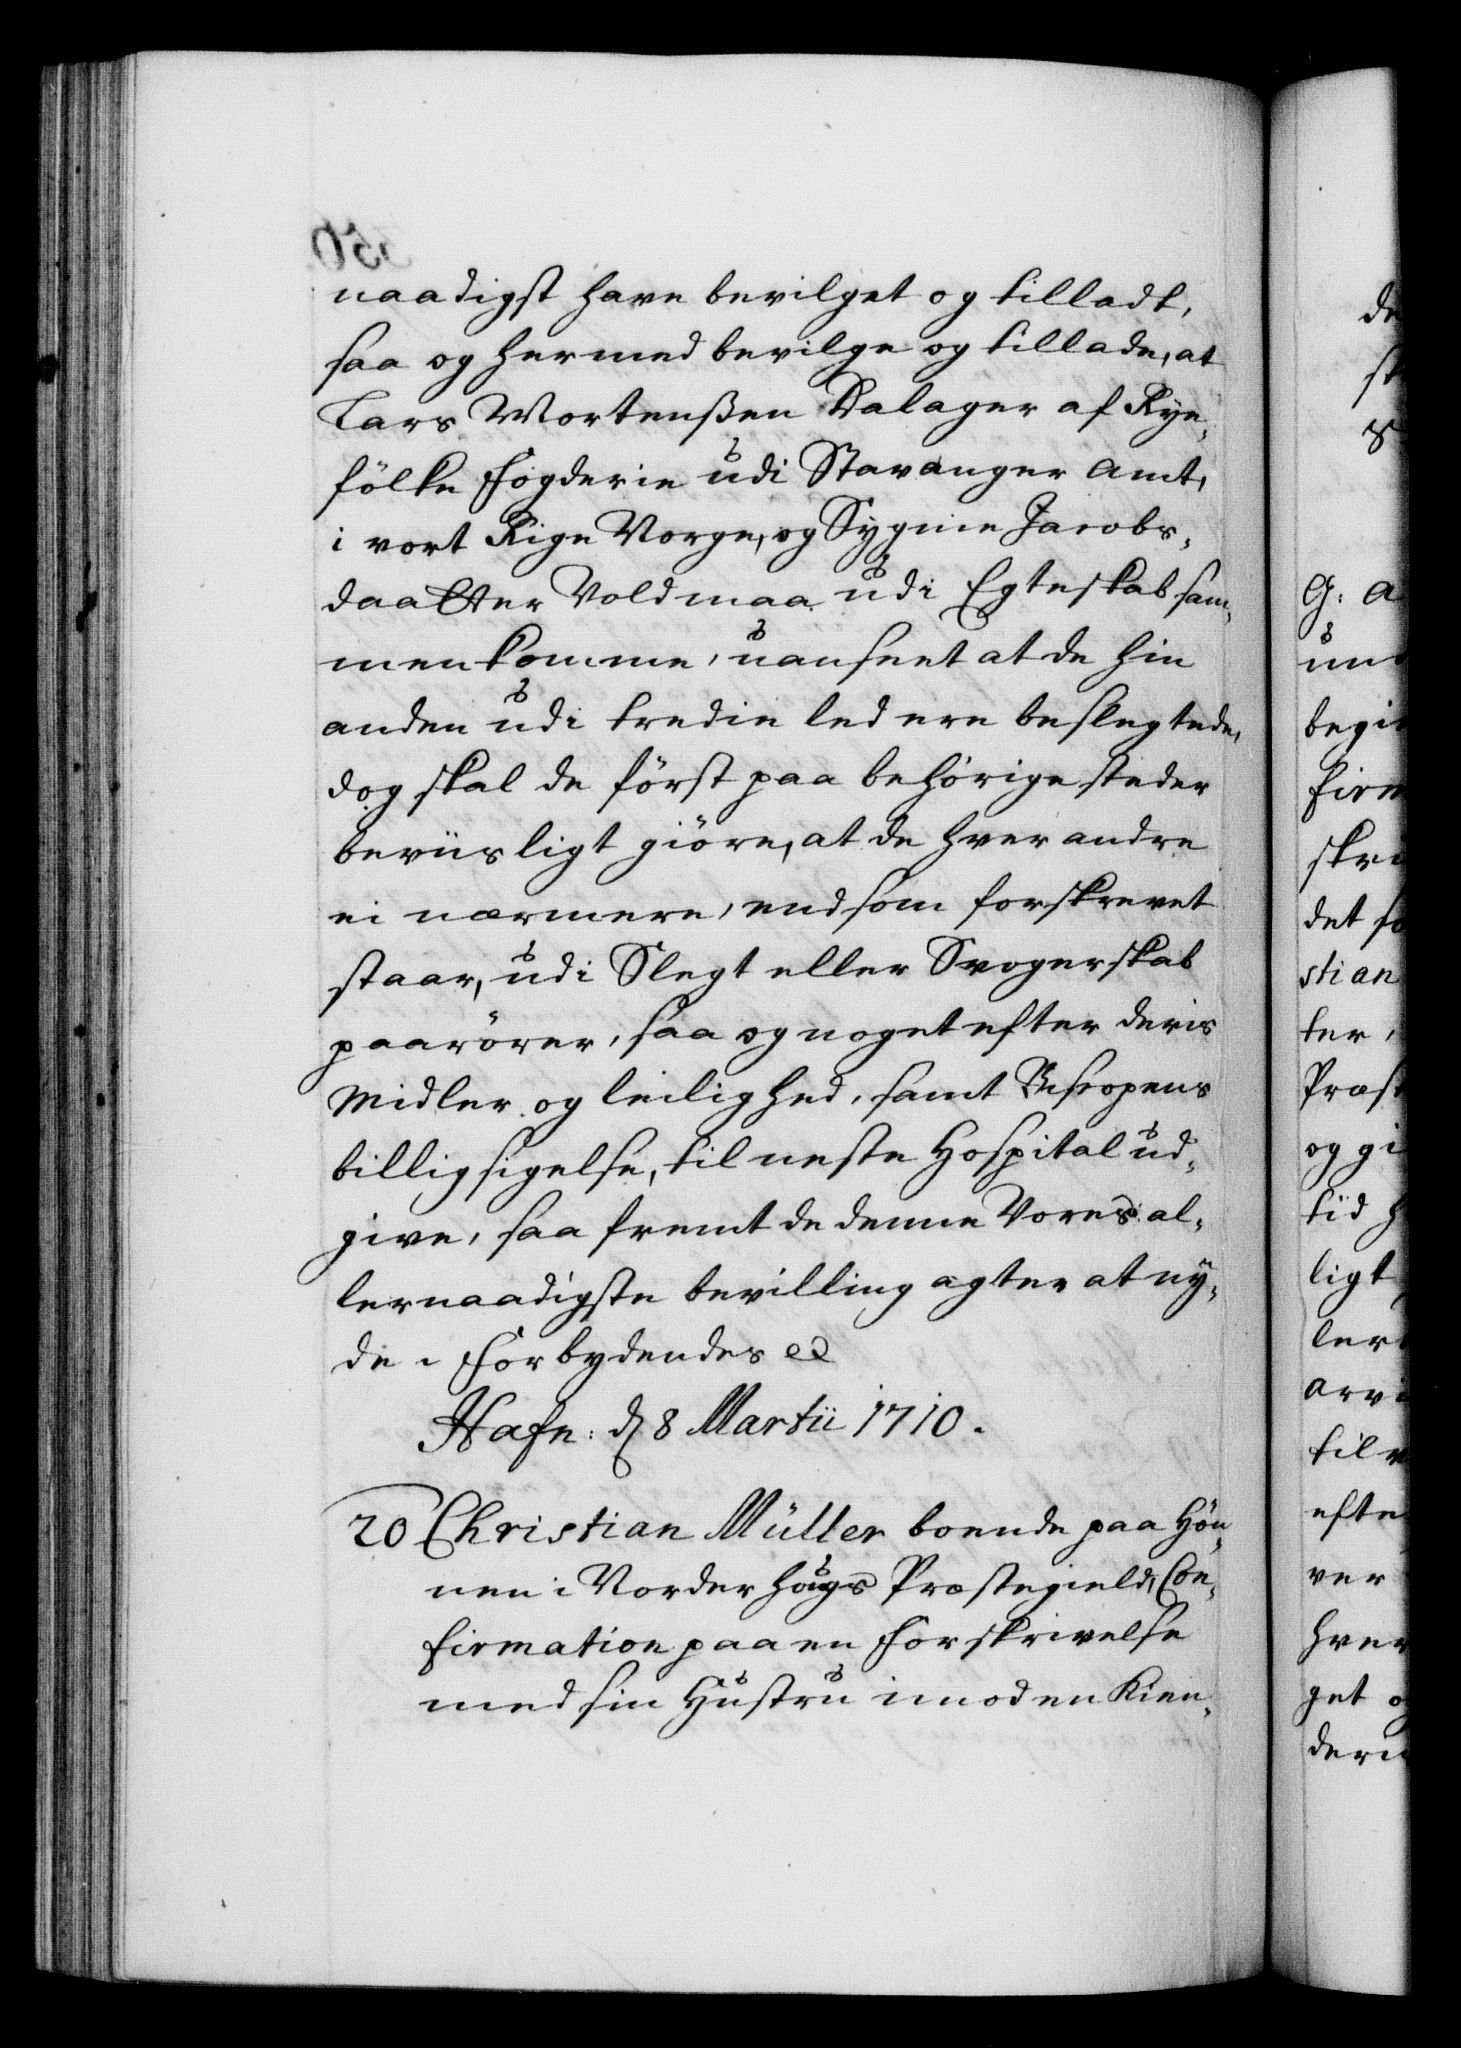 naadigst have bevilget og tilladt,
saa og hermed bevilge og tillade, at
Lars Mortenßen Dalager af Rye-
fölke Fogderie udi Stavanger Amt,
i vort Rige Norge, og Sygnie Jacobs-
daatter Voldmaa udi Egteskab sam-
menkomme, uanseet at de hin
anden udi tredie led ere beslegtede,
dog skal de först paa behörige steder
beviisligt giöre, at de hver andre
ei nærmere, end som forskrevet
staar, udi Slegt eller Svogerskab
paarörer, saa og noget efter deris
Midler og leilighed, samt Biscopens
billigsigelse, til neste Hospital ud-
give, saa fremt de denne Vores al-
lernaadigste bevilling agter at ny-
de. Forbydendes &
Hafn: d 8 Martii 1710.
20 Christian Müller boende paa Hön-
nen i Norderhougs Præstegield, Con-
firmation paa en Forskrivelse
med sin Hustru imod en Kien-
de
G: A
det so
stian
ter,
Præst
og gi
tid h
ligt
efte
ver
get o